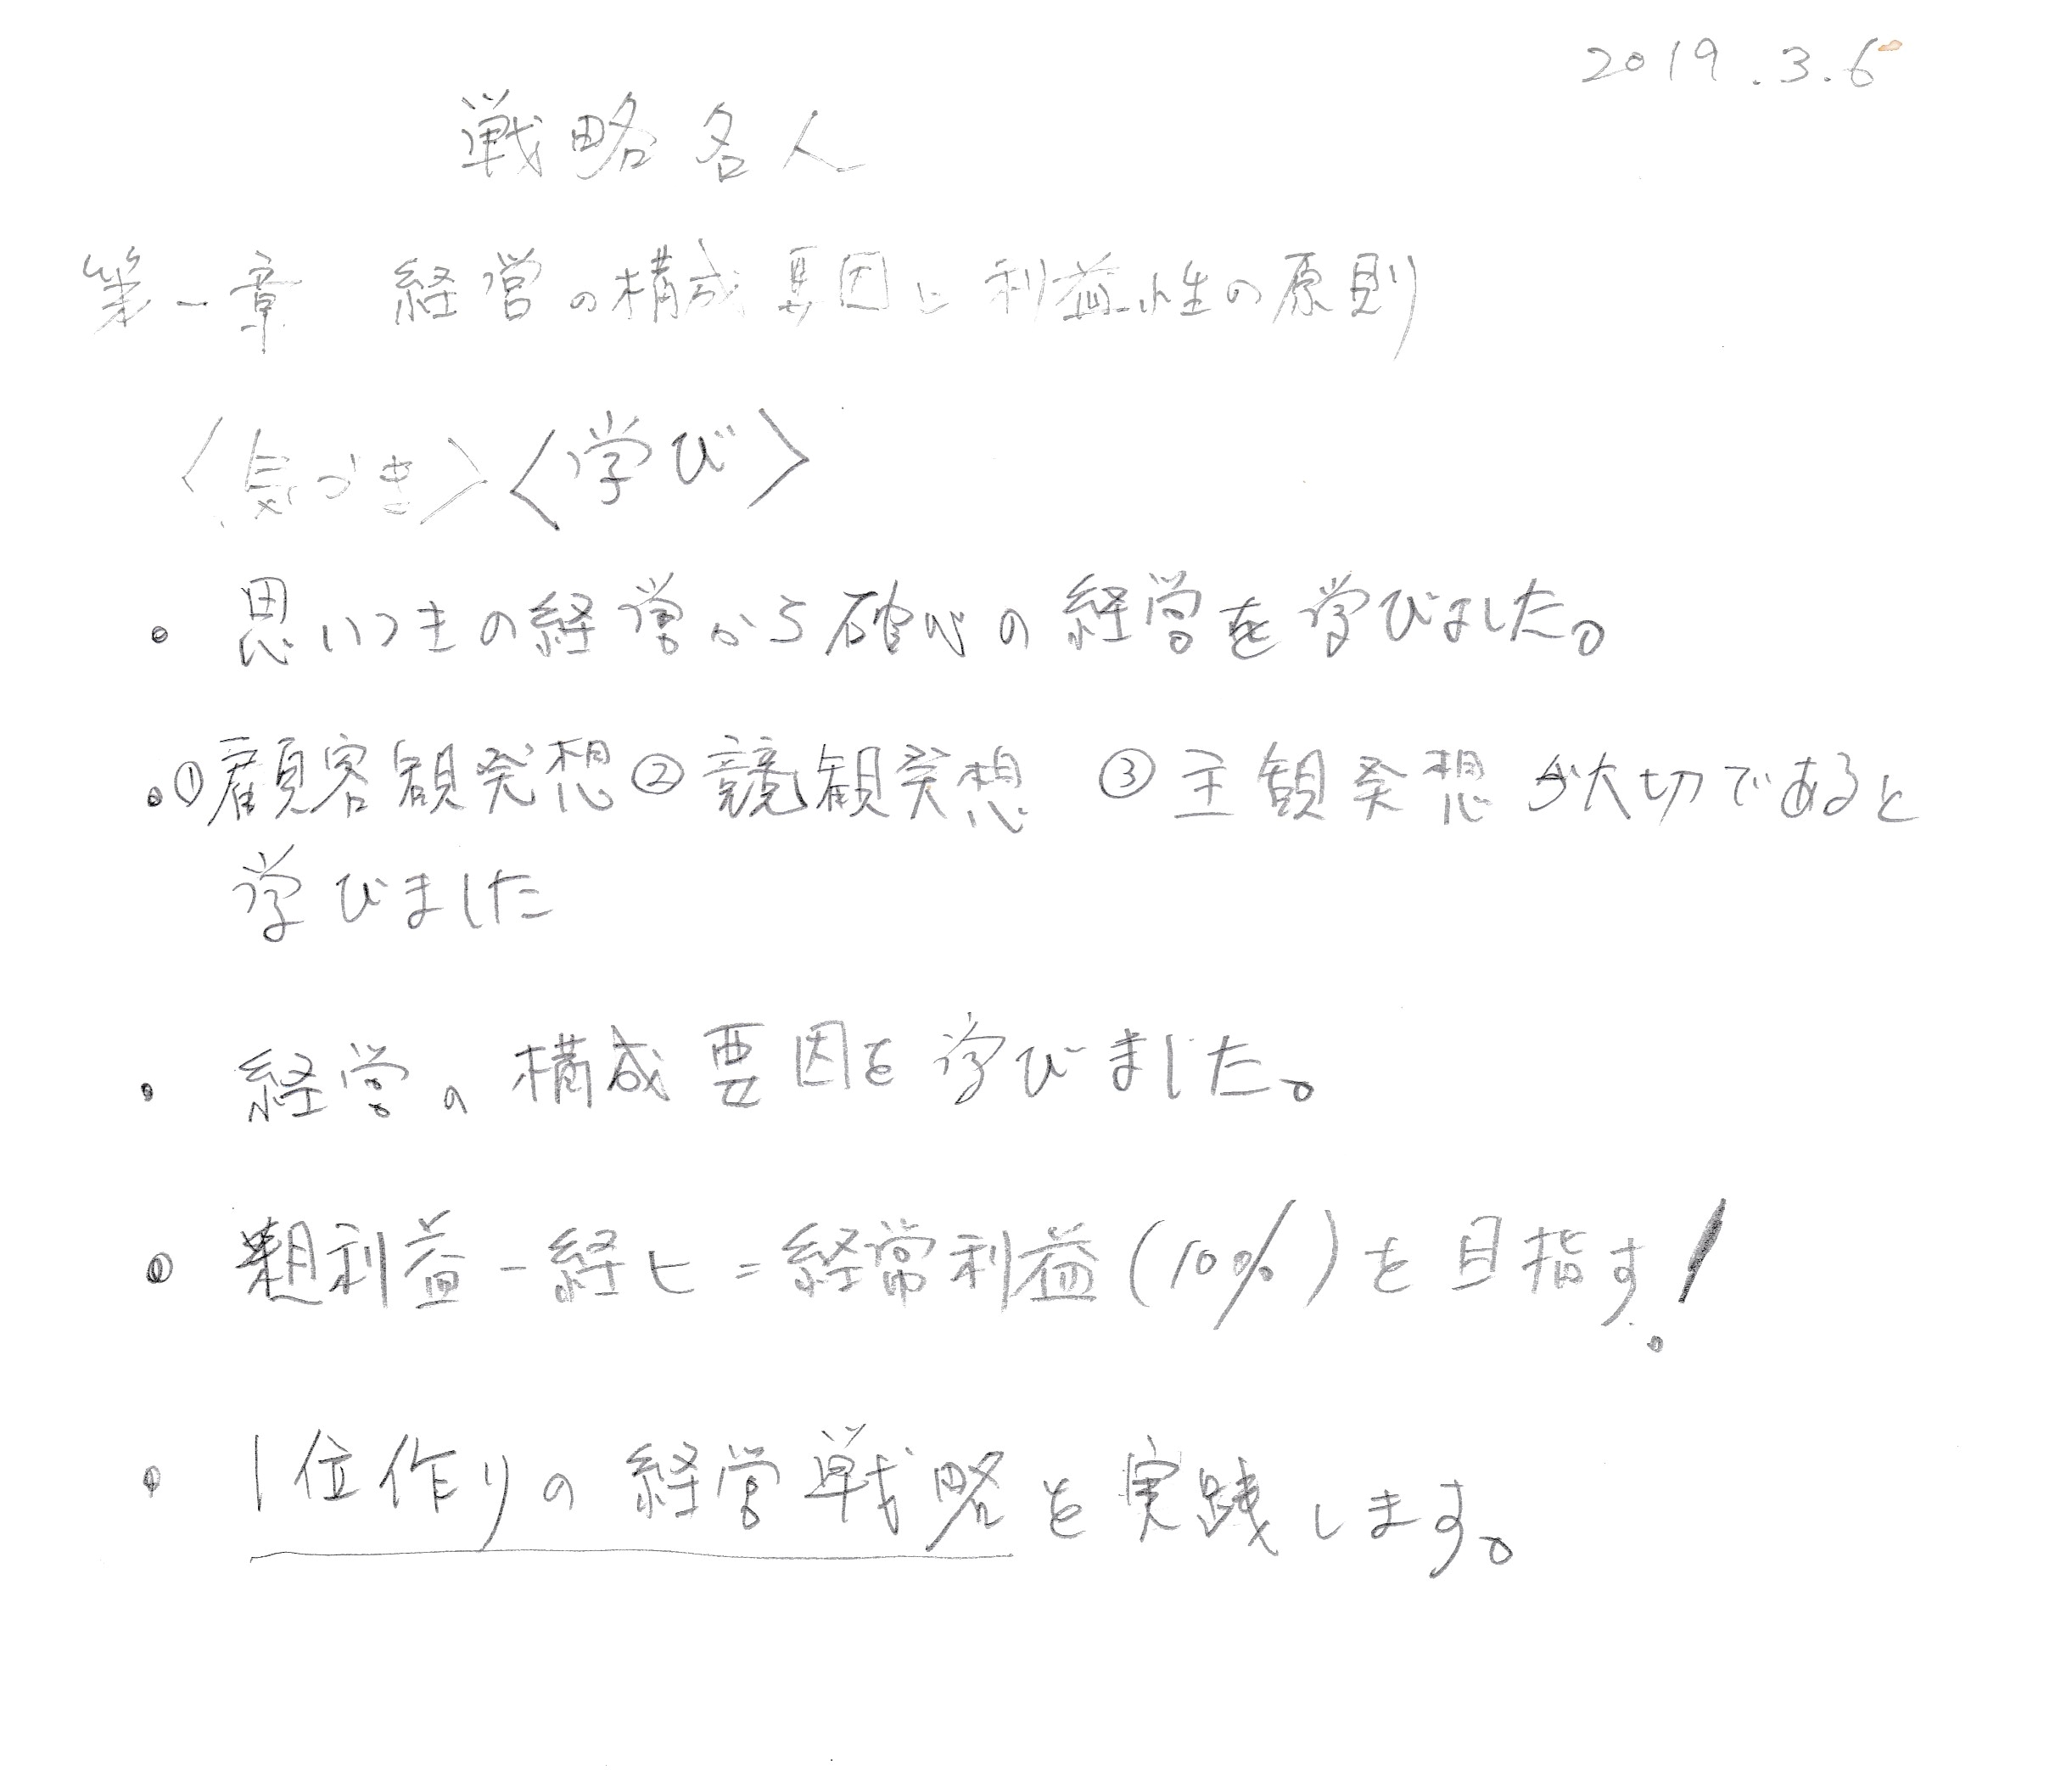 2019.3.6
戦略名人
第一章 経営の構成要因と利益性の原則
〈気づき〉〈学び〉
・思いつきの経営から確心の経営を学びました。
・①顧客観発想②競観発想 ③主観発想が大切であると
学びました
・経営の構成要因を学びました。
・粗利益-経ヒ=経常利益(10%)を目指す!
・1位作りの経営戦略を実践します。